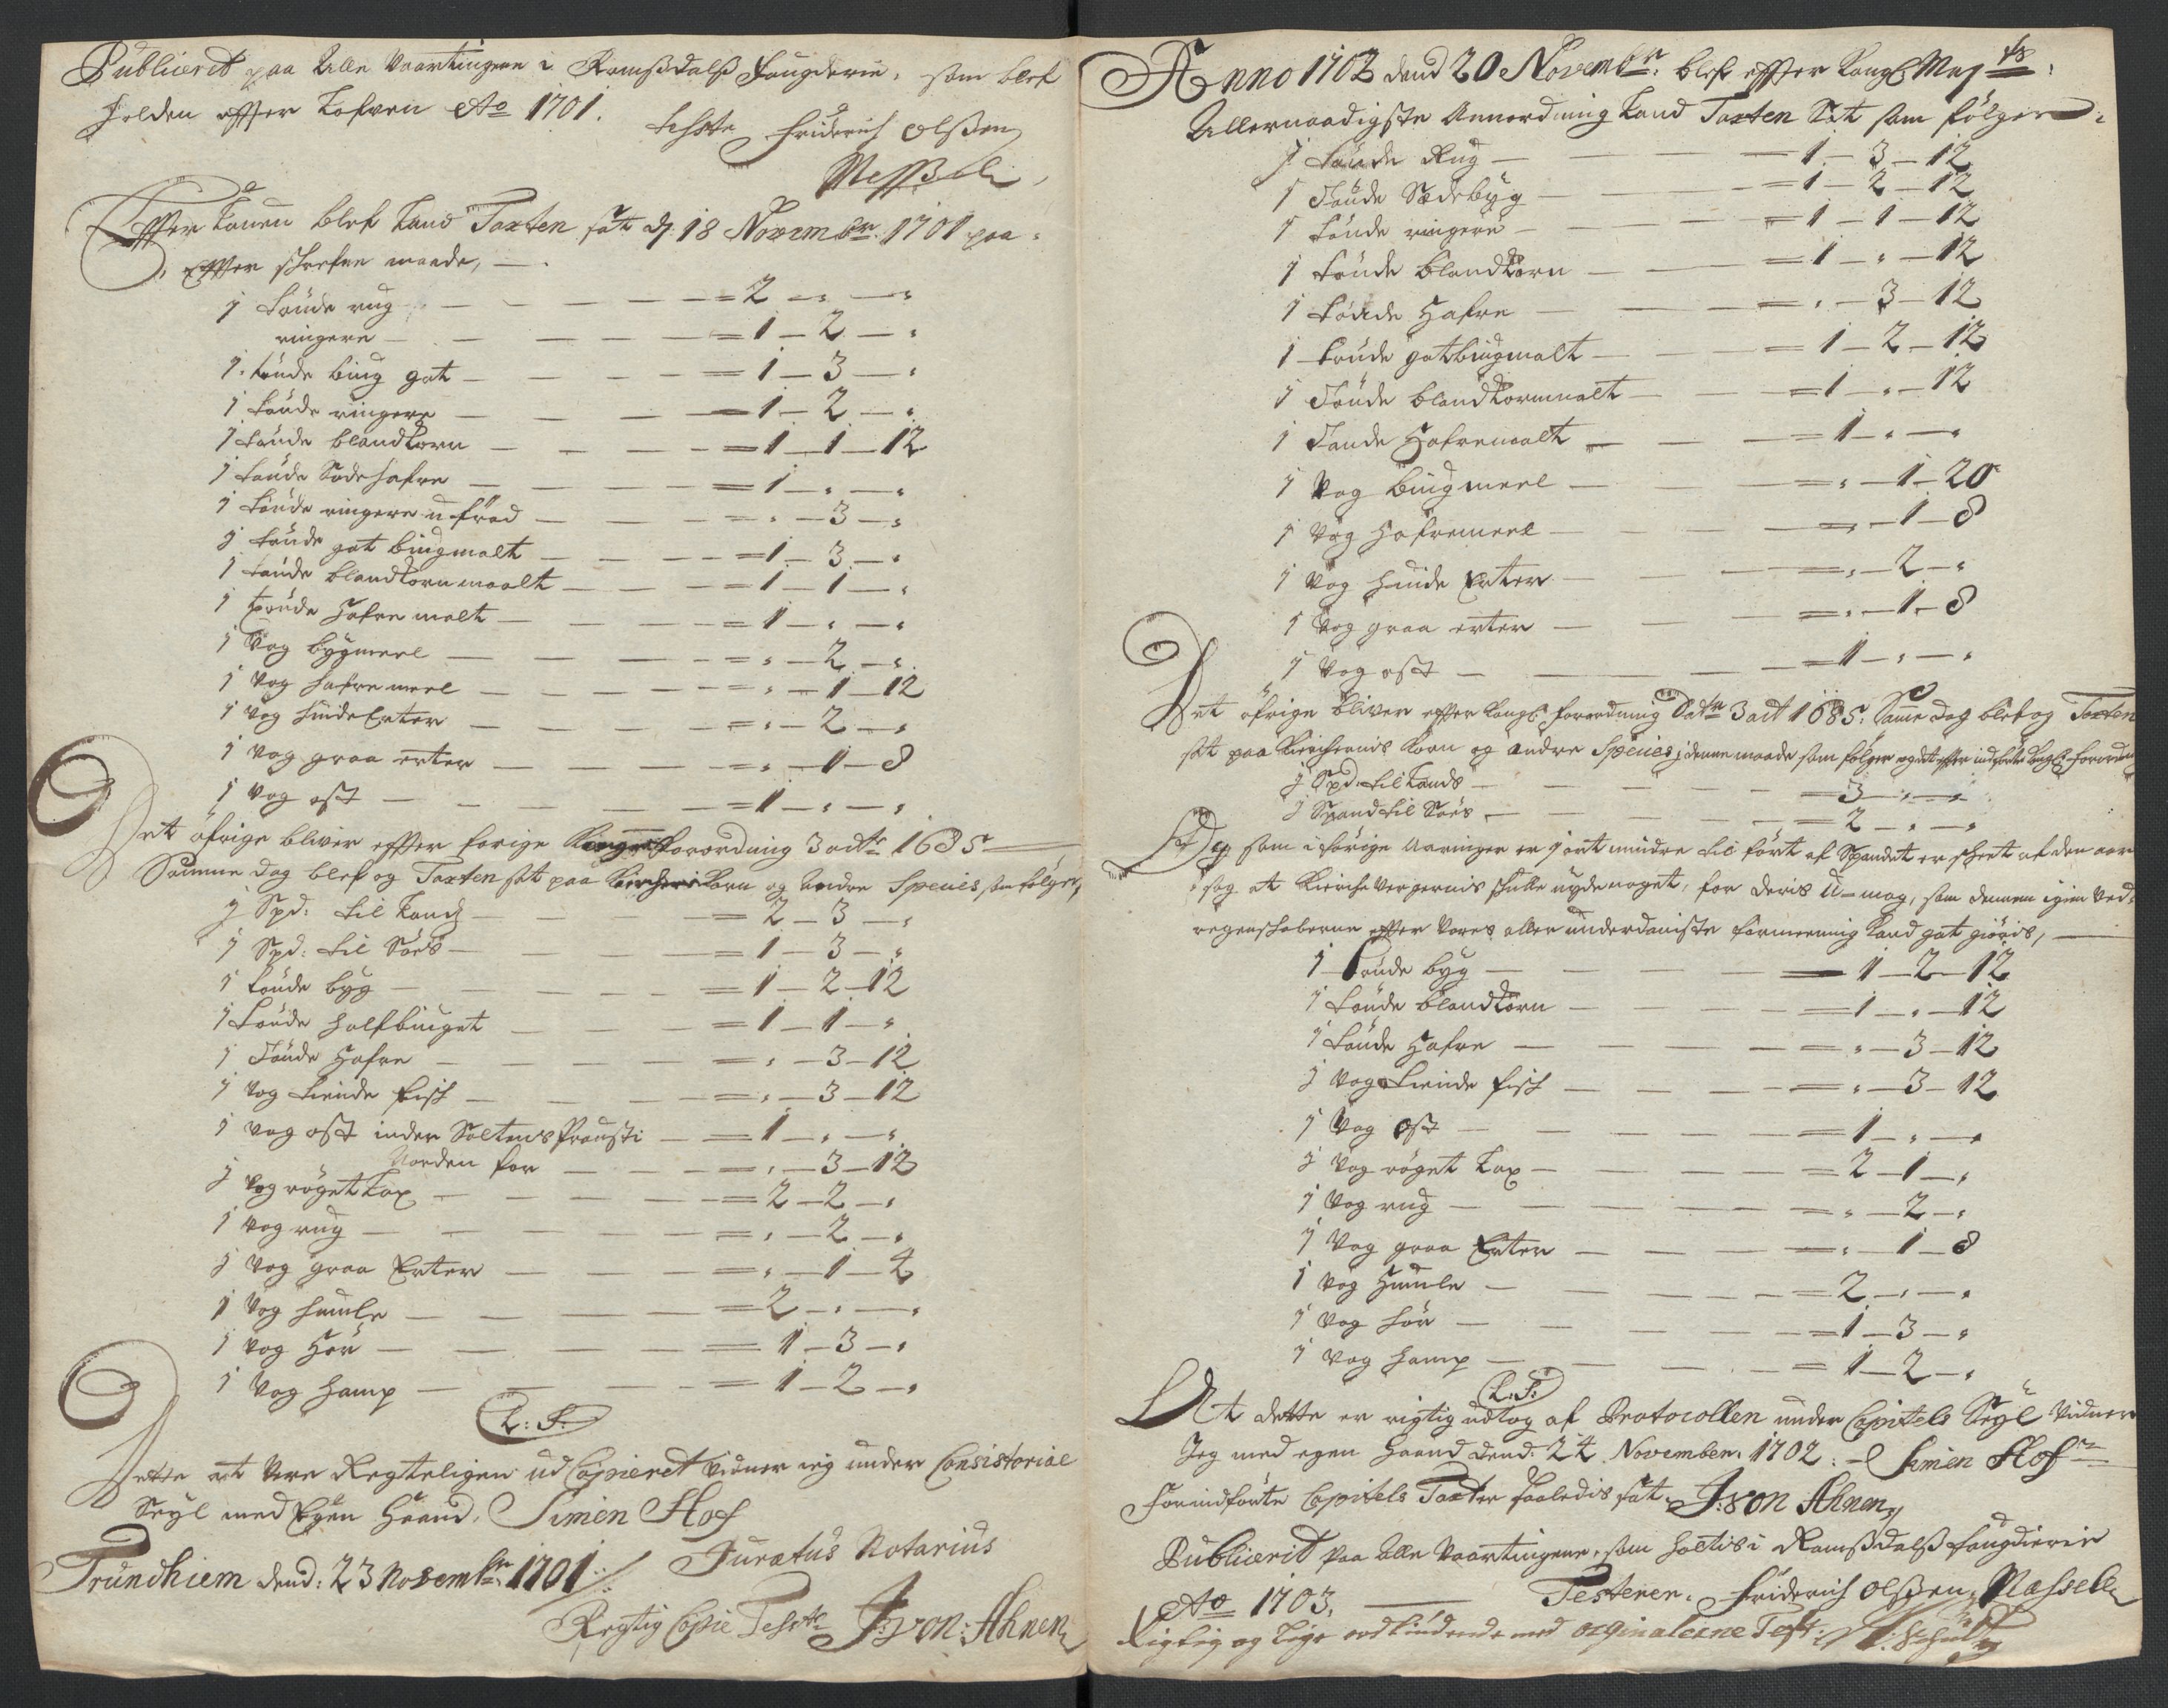 Publicerit paa Alle Vaartingene i Romsdals Fougderie, som blef
holden effter Lofven Ao 1701.
testr Friderich Olssen
Mesßel
Effter Loven blef Land Taxten sat d 18 Novembr. 1701 paa
Effter schrefne maade,
1 tønde rug — = 2 — " — "
ringere — = 1 — 2 — "
1 tønde biug got — = 1 — 3 — "
1 tønde ringere — = 1 — 2 — "
1 tønde blandkorn — = 1 — 1 — 12
1 tønde Sædehafre — = 1 — " — "
1 tønde ringere — = " — 3 — "
1 tønde got biugmalt — = 1 — 3 — "
1 tønde blandkornmalt — = 1 — 1 — "
1 tønde Hafre malt — = 1 — " — "
1 Vog bygmeel — = " — 2 — "
1 Vog hafremeel — = " — 1 — 12
1 Vog hvide Erter — = " — 2 — "
1 Vog graa erter — = " — 1 — 8
1 Vog ost — = 1 — " — "
Det öfrige bliver effter forige Forordning 3 octr 1685
Samme dag blef og Taxten sat paa Kircheskorn og Andre Species som følger,
1 Spd: til Lands — = 2 — 3 — "
1 Spd: til Søes — = 1 — 3 — "
1 tønde byg — = 1 — 2 — 12
1 tønde halfbiuget — = 1 — 1 — "
1 Tønde Hafre — = " — 3 — 12
1 Vog tiende fisch — = " — 3 — 12
1 Vog ost inden Saltens Prousti — = 1 — " — "
Norden for — = " — 3 — 12
1 Vog røget Lax — = 2 — 2 — "
1 Vog rug — = " — 2 — "
1 Vog graa Erter — = " — 1 — 4
1 Vog humle — = 2 — " — "
1 Vog Hør — = 1 — 3 — "
1 Vog hamp — = 1 — 2 — "
L: S:
Dette at være Regteligen ud Copieret vidner ieg under Consistorial
Seyl med Egen Haand, Simen Hof
Juratus Notarius
Trundhiem dend: 23 Novembr. 1701
Regtig Copie Testr J: von: Ahnen
Anno 1702 dend 20 Novembr. blef effter Kongl Mayts:
Allernaadigste Anordning Land Taxten Sat som følger
1 tønde Rug — = 1 — 3 — 12
1 Tønde Sædebyg — = 1 — 2 — 12
1 tønde ringere — = 1 — 1 — 12
1 tønde blandkorn — = 1 — " — 12
1 tønde Hafre — = " — 3 — 12
1 tønde got biugmalt — = 1 — 2 — 12
1 Tønde blandkornmalt — = 1 — " — 12
1 Tønde Hafremalt — = 1 — " — "
1 Vog biugmeel — = " — 1 — 20
1 Vog Hafremeel — = " — 1 — 8
1 Vog hvide Erter — = " — 2 — "
1 Vog graa erter — = " — 1 — 8
1 Vog ost — = 1 — " — "
Det öfrige bliver effter Kongl: forordning Datr 3 oct 1685. Samme dag blef og Taxten
sat paa Kirchernis korn og andre Species i denne maade som følger effter indførte Kongl: forordn:
1 Spd: til Lands — = 3 — " — "
1 Spand til Søes — = 2 — " — "
som i forige Aaringer er giort mindre til ført af Spandet er scheet af den aar
sag at Kirche Vergernis schulle nyde noget, for deris U-mag, som dennem igien ved
regenschaberne effter Vores aller underdanigste formeening kand got giøris,
1 tønde byg — = 1 — 2 — 12
1 tønde blandkorn — = 1 — " — 12
1 tønde Hafre — = " — 3 — 12
1 Vog tiende fisch — = " — 3 — 12
1 Vog Ost — = 1 — " — "
1 Vog røget Lax — = 2 — 1 — "
1 Vog rug — = " — 2 — "
1 Vog graa Erter — = " — 1 — 8
1 Vog Humle — = 2 — " — "
1 Vog hør — = 1 — 3 — "
1 Vog hamp — = 1 — 2 — "
L: S:
At dette er rigtig udtog af Protocollen under Capitels Seyl Vidner
Jeg med egen haand dend: 24 November 1702: Simen Hof
Forindførte Capitels Taxter saaledis sat. J: von Ahnen
Publicerit paa Alle Vaartingene, som holtis i Romsdals fougdierie
Ao 1703. Testerer. Friderich Olssen Mæssel
Rigtig og lige med originalerne Test: